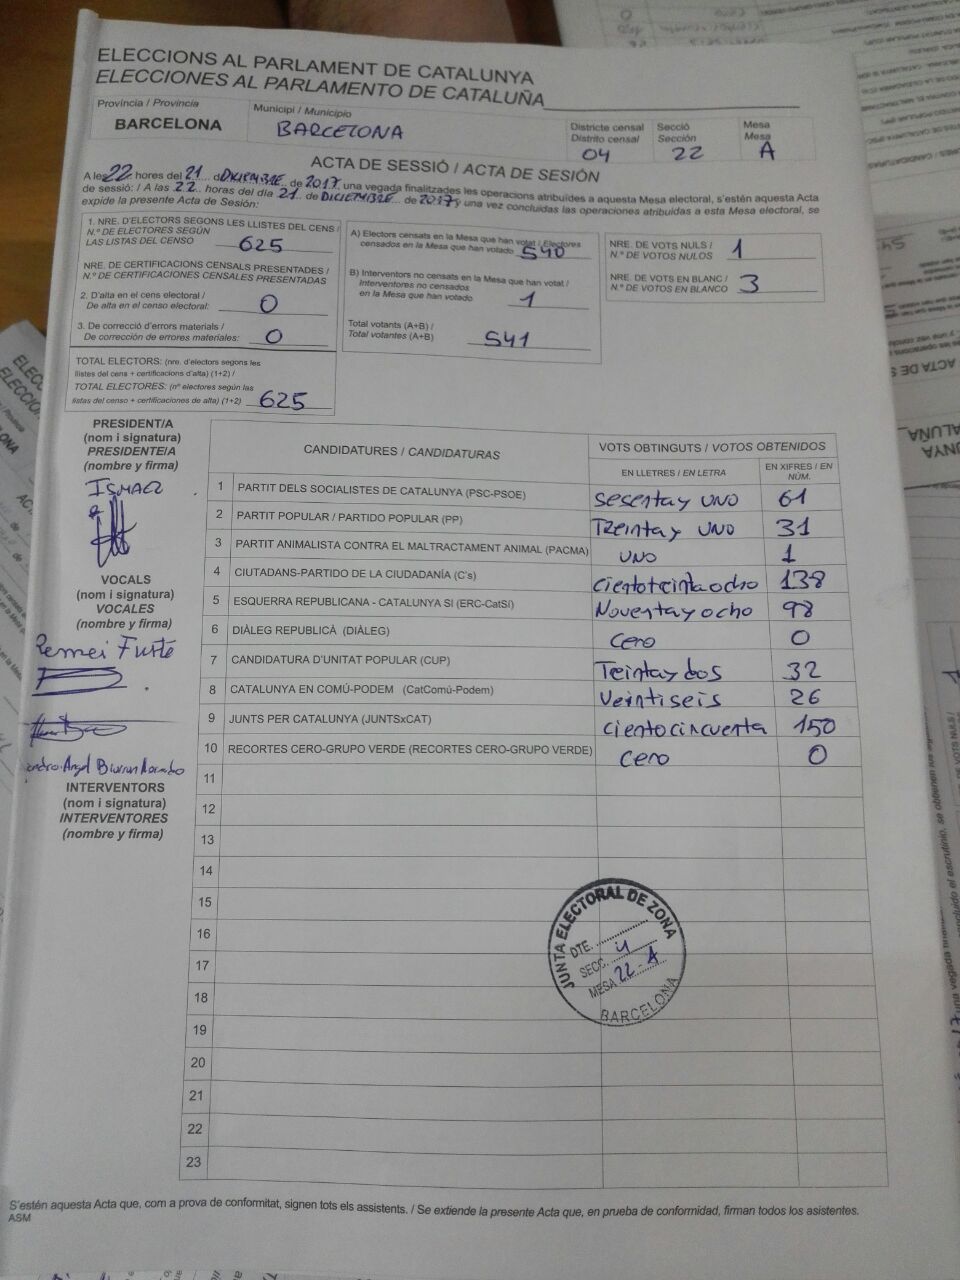 ELECCIONS AL PARLAMENT DE CATALUNYA
ELECCIONES AL PARLAMENTO DE CATALUÑA
Província / Provincia
BARCELONA
Municipi / Municipio
BARCELONA
Districte censal
Distrito censal
04
Secció
Sección
22
Mesa
Mesa
A
ACTA DE SESSIÓ / ACTA DE SESIÓN
A les 22 hores del 21 d DICIEMBRE de 2017, una vegada finalitzades les operacions atribuïdes a aquesta Mesa electoral, s'estén aquesta Acta
de sessió: / A las 22 horas del día 21 de DICIEMBRE de 2017 y una vez concluidas las operaciones atribuidas a esta Mesa electoral, se
expide la presente Acta de Sesión:
1. NRE. D'ELECTORS SEGONS LES LLISTES DEL CENS /
N.º DE ELECTORES SEGÚN
LAS LISTAS DEL CENSO 625
NRE. DE CERTIFICACIONS CENSALS PRESENTADES /
N.º DE CERTIFICACIONES CENSALES PRESENTADAS
2. D'alta en el cens electoral /
De alta en el censo electoral: 0
3. De correcció d'errors materials /
De corrección de errores materiales: 0
TOTAL ELECTORS: (nre. d'electors segons les
llistes del cens + certificacions d'alta) (1+2) /
TOTAL ELECTORES: (nº electores según las
listas del censo + certificaciones de alta) (1+2) 625
A) Electors censats en la Mesa que han votat / Electores
censados en la Mesa que han votado 540
B) Interventors no censats en la Mesa que han votat /
Interventores no censados
en la Mesa que han votado 1
Total votants (A+B) /
Total votantes (A+B) 541
NRE. DE VOTS NULS /
N.º DE VOTOS NULOS 1
NRE. DE VOTS EN BLANC /
N.º DE VOTOS EN BLANCO 3
PRESIDENT/A
(nom i signatura)
PRESIDENTE/A
(nombre y firma)
ISMAEL
VOCALS
(nom i signatura)
VOCALES
(nombre y firma)
Remei Fuste
INTERVENTORS
(nom i signatura)
INTERVENTORES
(nombre y firma)
CANDIDATURES / CANDIDATURAS
VOTS OBTINGUTS / VOTOS OBTENIDOS
EN LLETRES / EN LETRA
EN XIFRES / EN NÚM.
1 PARTIT DELS SOCIALISTES DE CATALUNYA (PSC-PSOE) Sesenta y UNO 61
2 PARTIT POPULAR / PARTIDO POPULAR (PP) Treinta y UNO 31
3 PARTIT ANIMALISTA CONTRA EL MALTRACTAMENT ANIMAL (PACMA) UNO 1
4 CIUTADANS-PARTIDO DE LA CIUDADANÍA (C's) Cientotreintaocho 138
5 ESQUERRA REPUBLICANA - CATALUNYA SÍ (ERC-CatSí) Noventa y ocho 98
6 DIÀLEG REPUBLICÀ (DIÀLEG) Cero 0
7 CANDIDATURA D'UNITAT POPULAR (CUP) Treinta y dos 32
8 CATALUNYA EN COMÚ-PODEM (CatComú-Podem) Veintiseis 26
9 JUNTS PER CATALUNYA (JUNTSxCAT) Ciento cincuenta 150
10 RECORTES CERO-GRUPO VERDE (RECORTES CERO-GRUPO VERDE) Cero 0
11
12
13
14
15
16
17
18
19
20
21
22
23
JUNTA ELECTORAL DE ZONA
DTE. 4
SECC. 22 - A
MESA
BARCELONA
S'estén aquesta Acta que, com a prova de conformitat, signen tots els assistents. / Se extiende la presente Acta que, en prueba de conformidad, firman todos los asistentes.
ASM